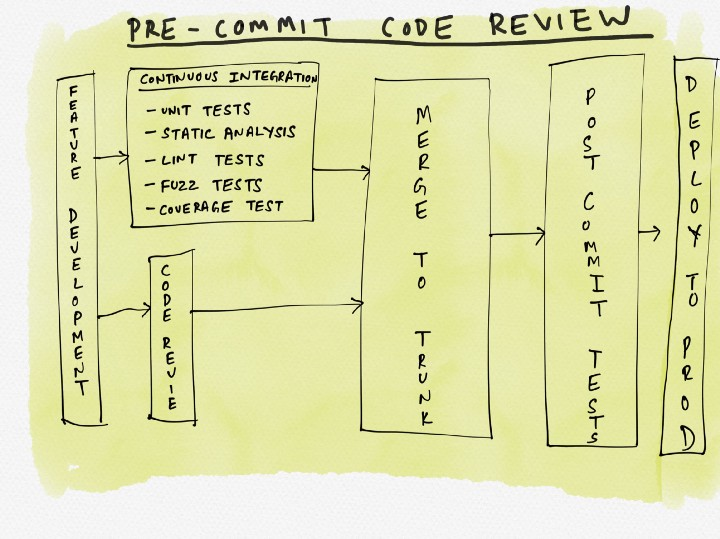 PRE-COMMIT CODE REVIEW
FEATURE DEVELOPMENT
CONTINUOUS INTEGRATION
- UNIT TESTS
- STATIC ANALYSIS
- LINT TESTS
- FUZZ TESTS
- COVERAGE TEST
CODE REVIE
MERGE TO TRUNK
POST COMMIT TESTS
DEPLOY TO PROD